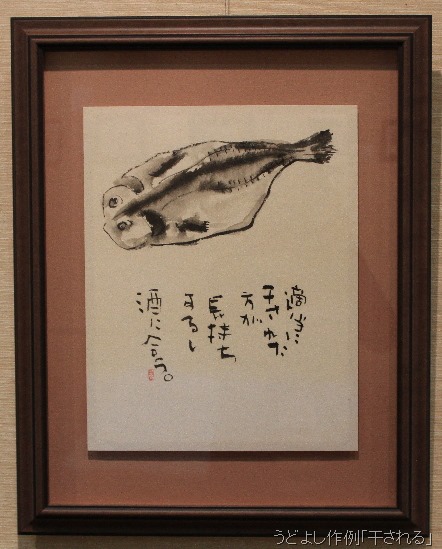 適当に
干された
方が
長持ち
するし
酒に合う。
うどよし作例「干される」